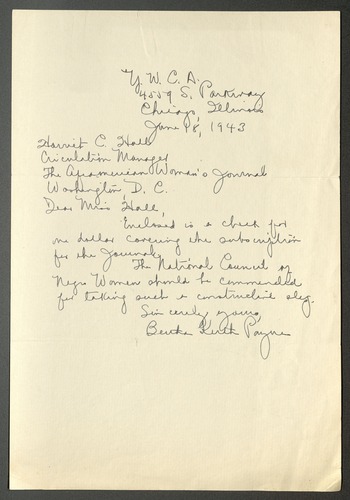 Y. W. C. A.
4559 S. Parkway
Chicago, Illinois
June 18, 1943
Harriet C. Hall
Circulation Manager
The Aframerican Woman's Journal
Washington D. C.
Dear Miss Hall,
Enclosed is a check for
one dollar covering the subscription
for the Journal.
The National Council of
Negro Women should be commended
for taking such a constructive step.
Sincerely yours,
Bertha Payne